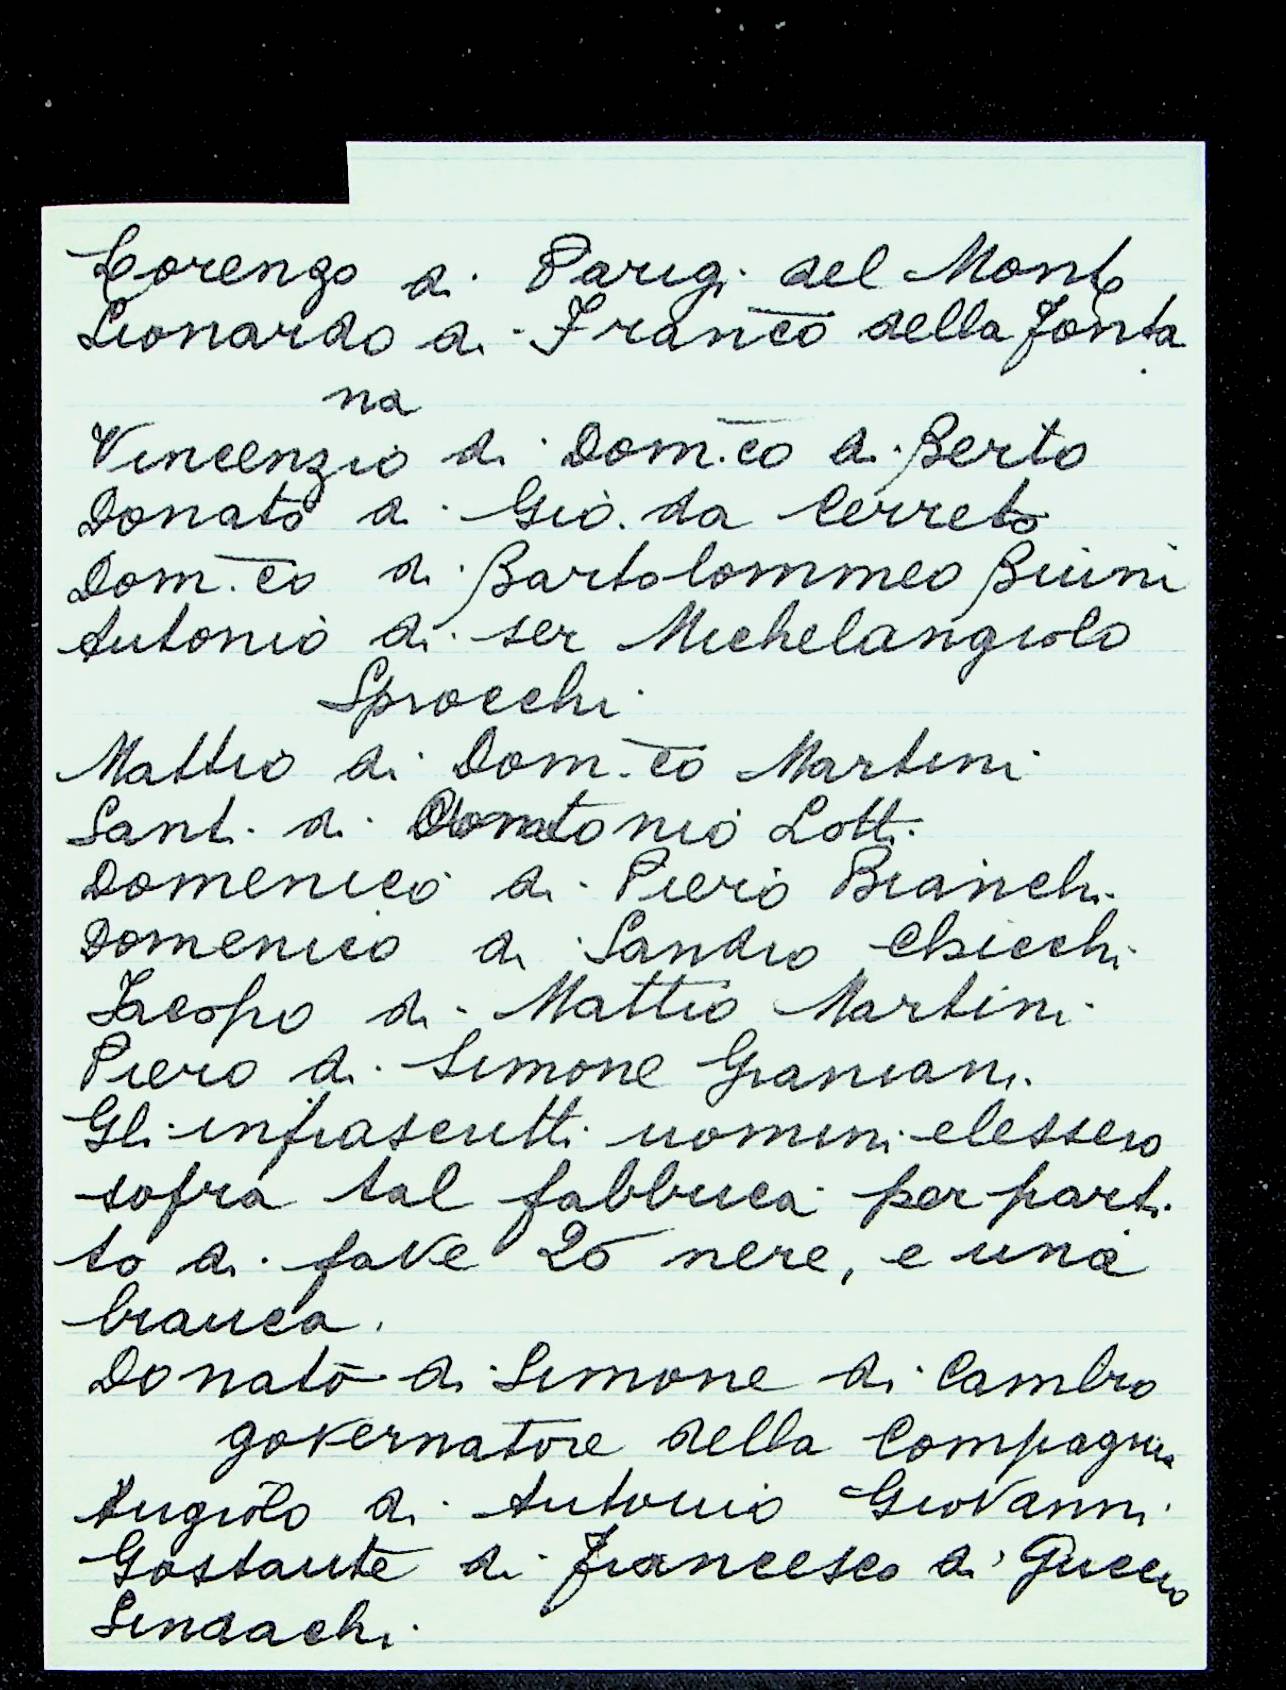 Lorenzo di Parigi del Monte
Lionardo di Franco della Fonta
na
Vincenzio di Dom.co di Berto
Donato di Gio. da Cerreto
Dom.co di Bartolommeo Buini
Antonio di ser Michelangiolo
Sprocchi
Mattio di Dom.co Martini
Santi di Antonio Lotti
Domenico di Piero Bianchi
Domenico di Sandro Chiechi
Jacopo di Mattio Martini
Piero di Simone Graniani
Gli infrascritti uomini elessero
sopra tal fabbrica per parti
to di fave 20 nere, e una
bianca.
Donato di Simone di Cambio
governatore della Compagnia
Angiolo di Antonio Giovanni
Gostante di Francesco di Guccio
Sindachi